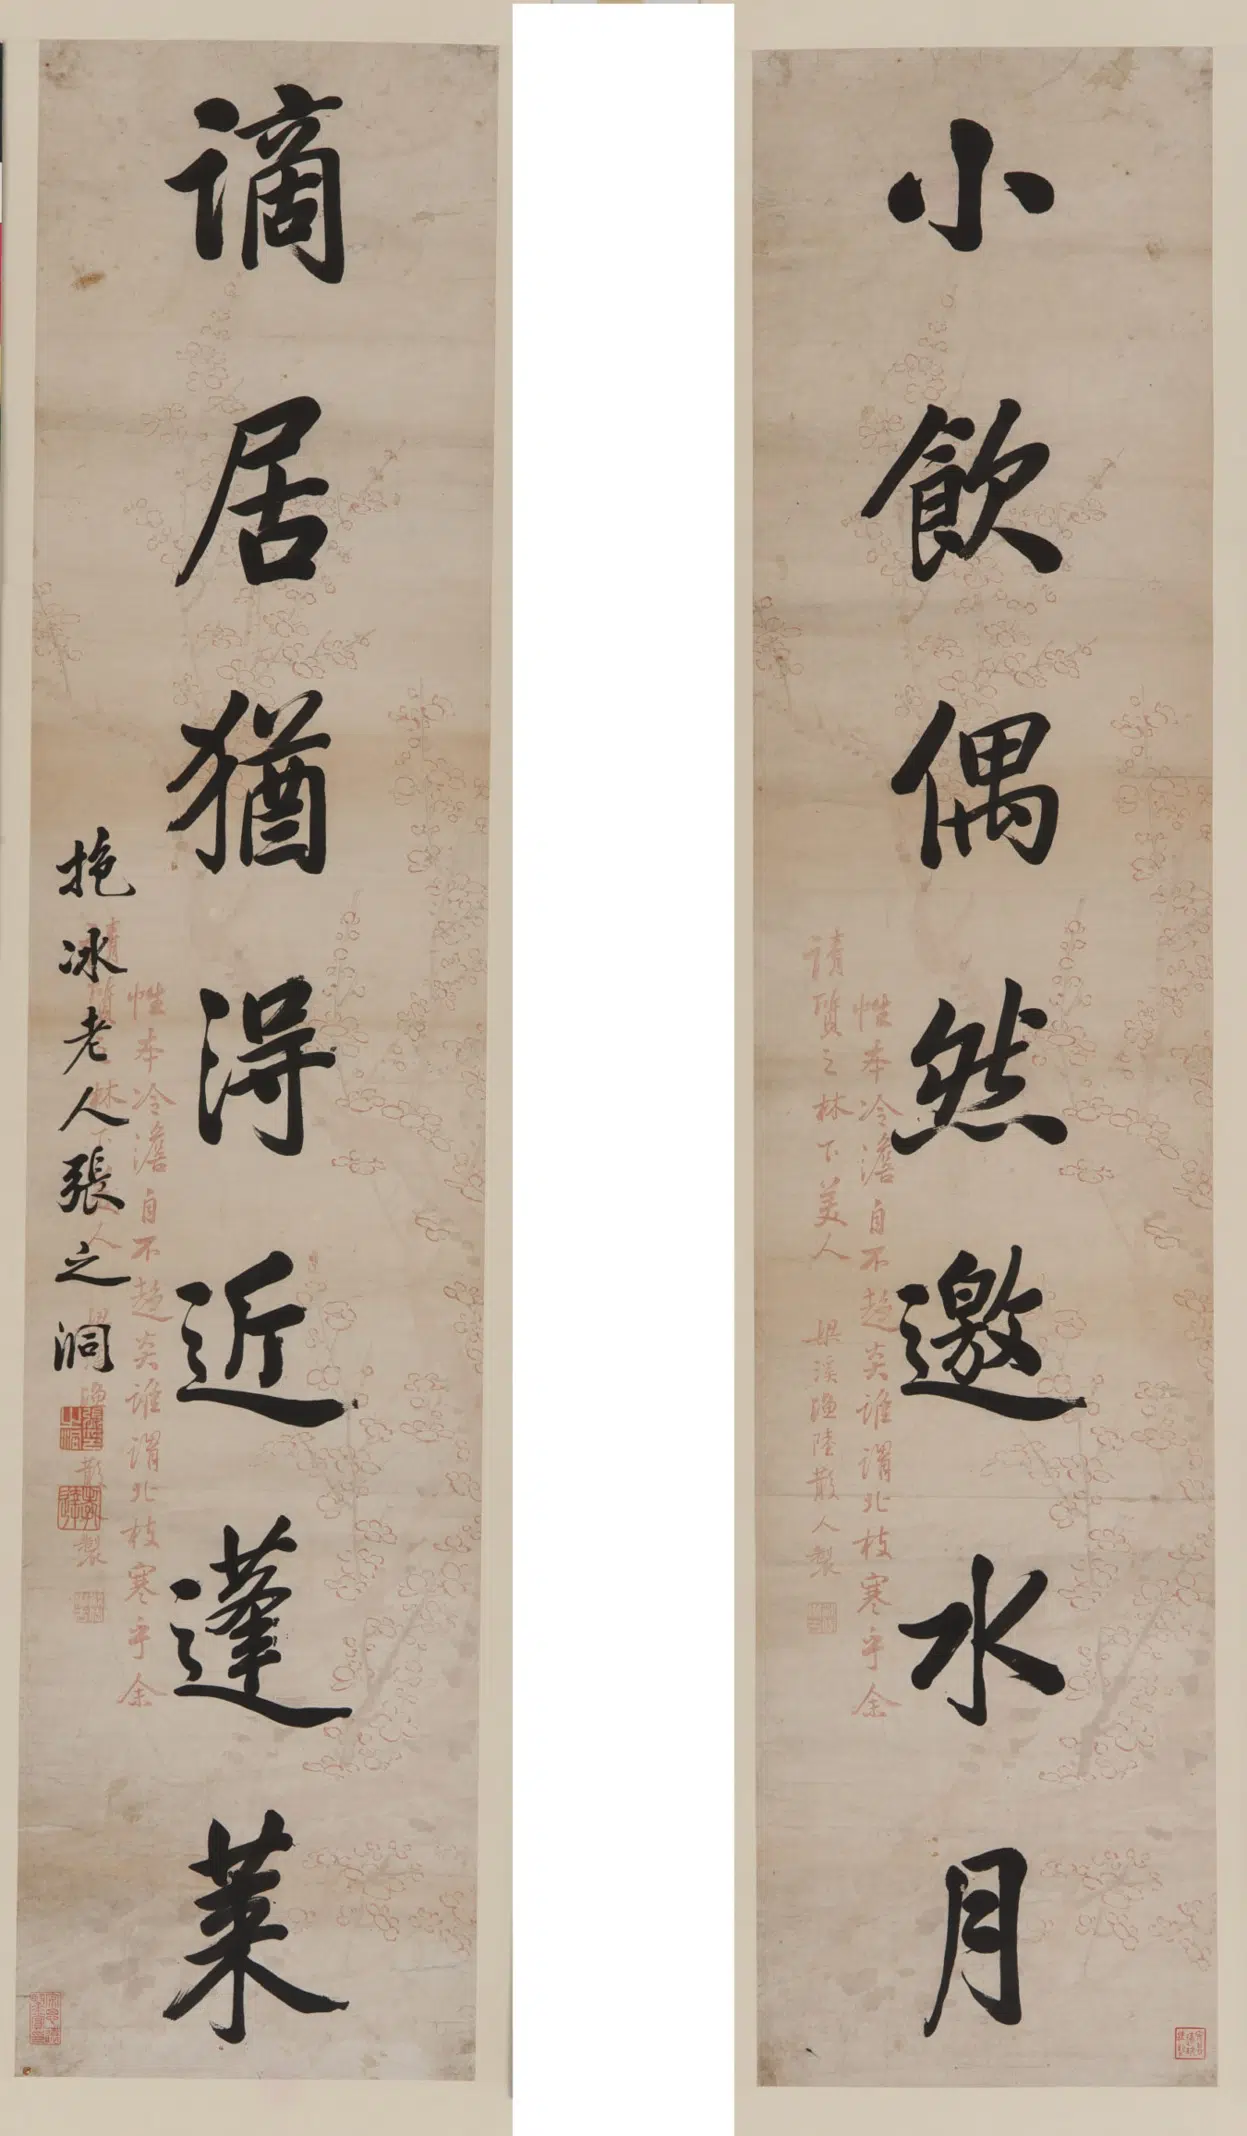 小飲偶然邀水月
謫居猶得近蓬萊
抱冰老人張之洞
性本冷澹自不趨炎誰謂北枝寒乎余
請質之林下美人 梁溪漁陸散人製
性本冷澹自不趨炎誰謂北枝寒乎余